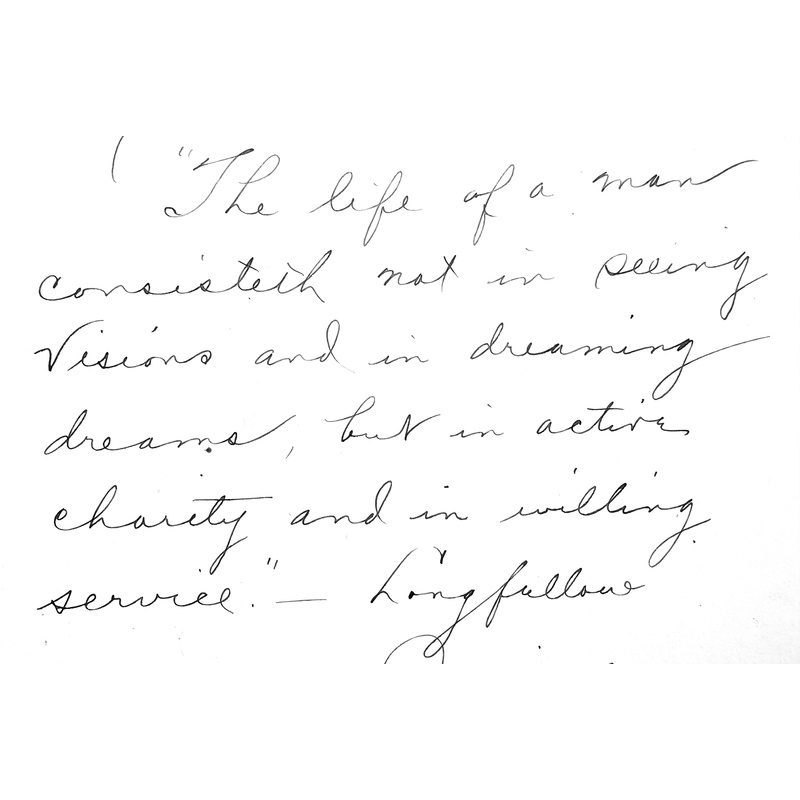 "The life of a man
consisteth not in seeing
Visions and in dreaming
dreams, but in active
charity and in willing
service." — Longfellow